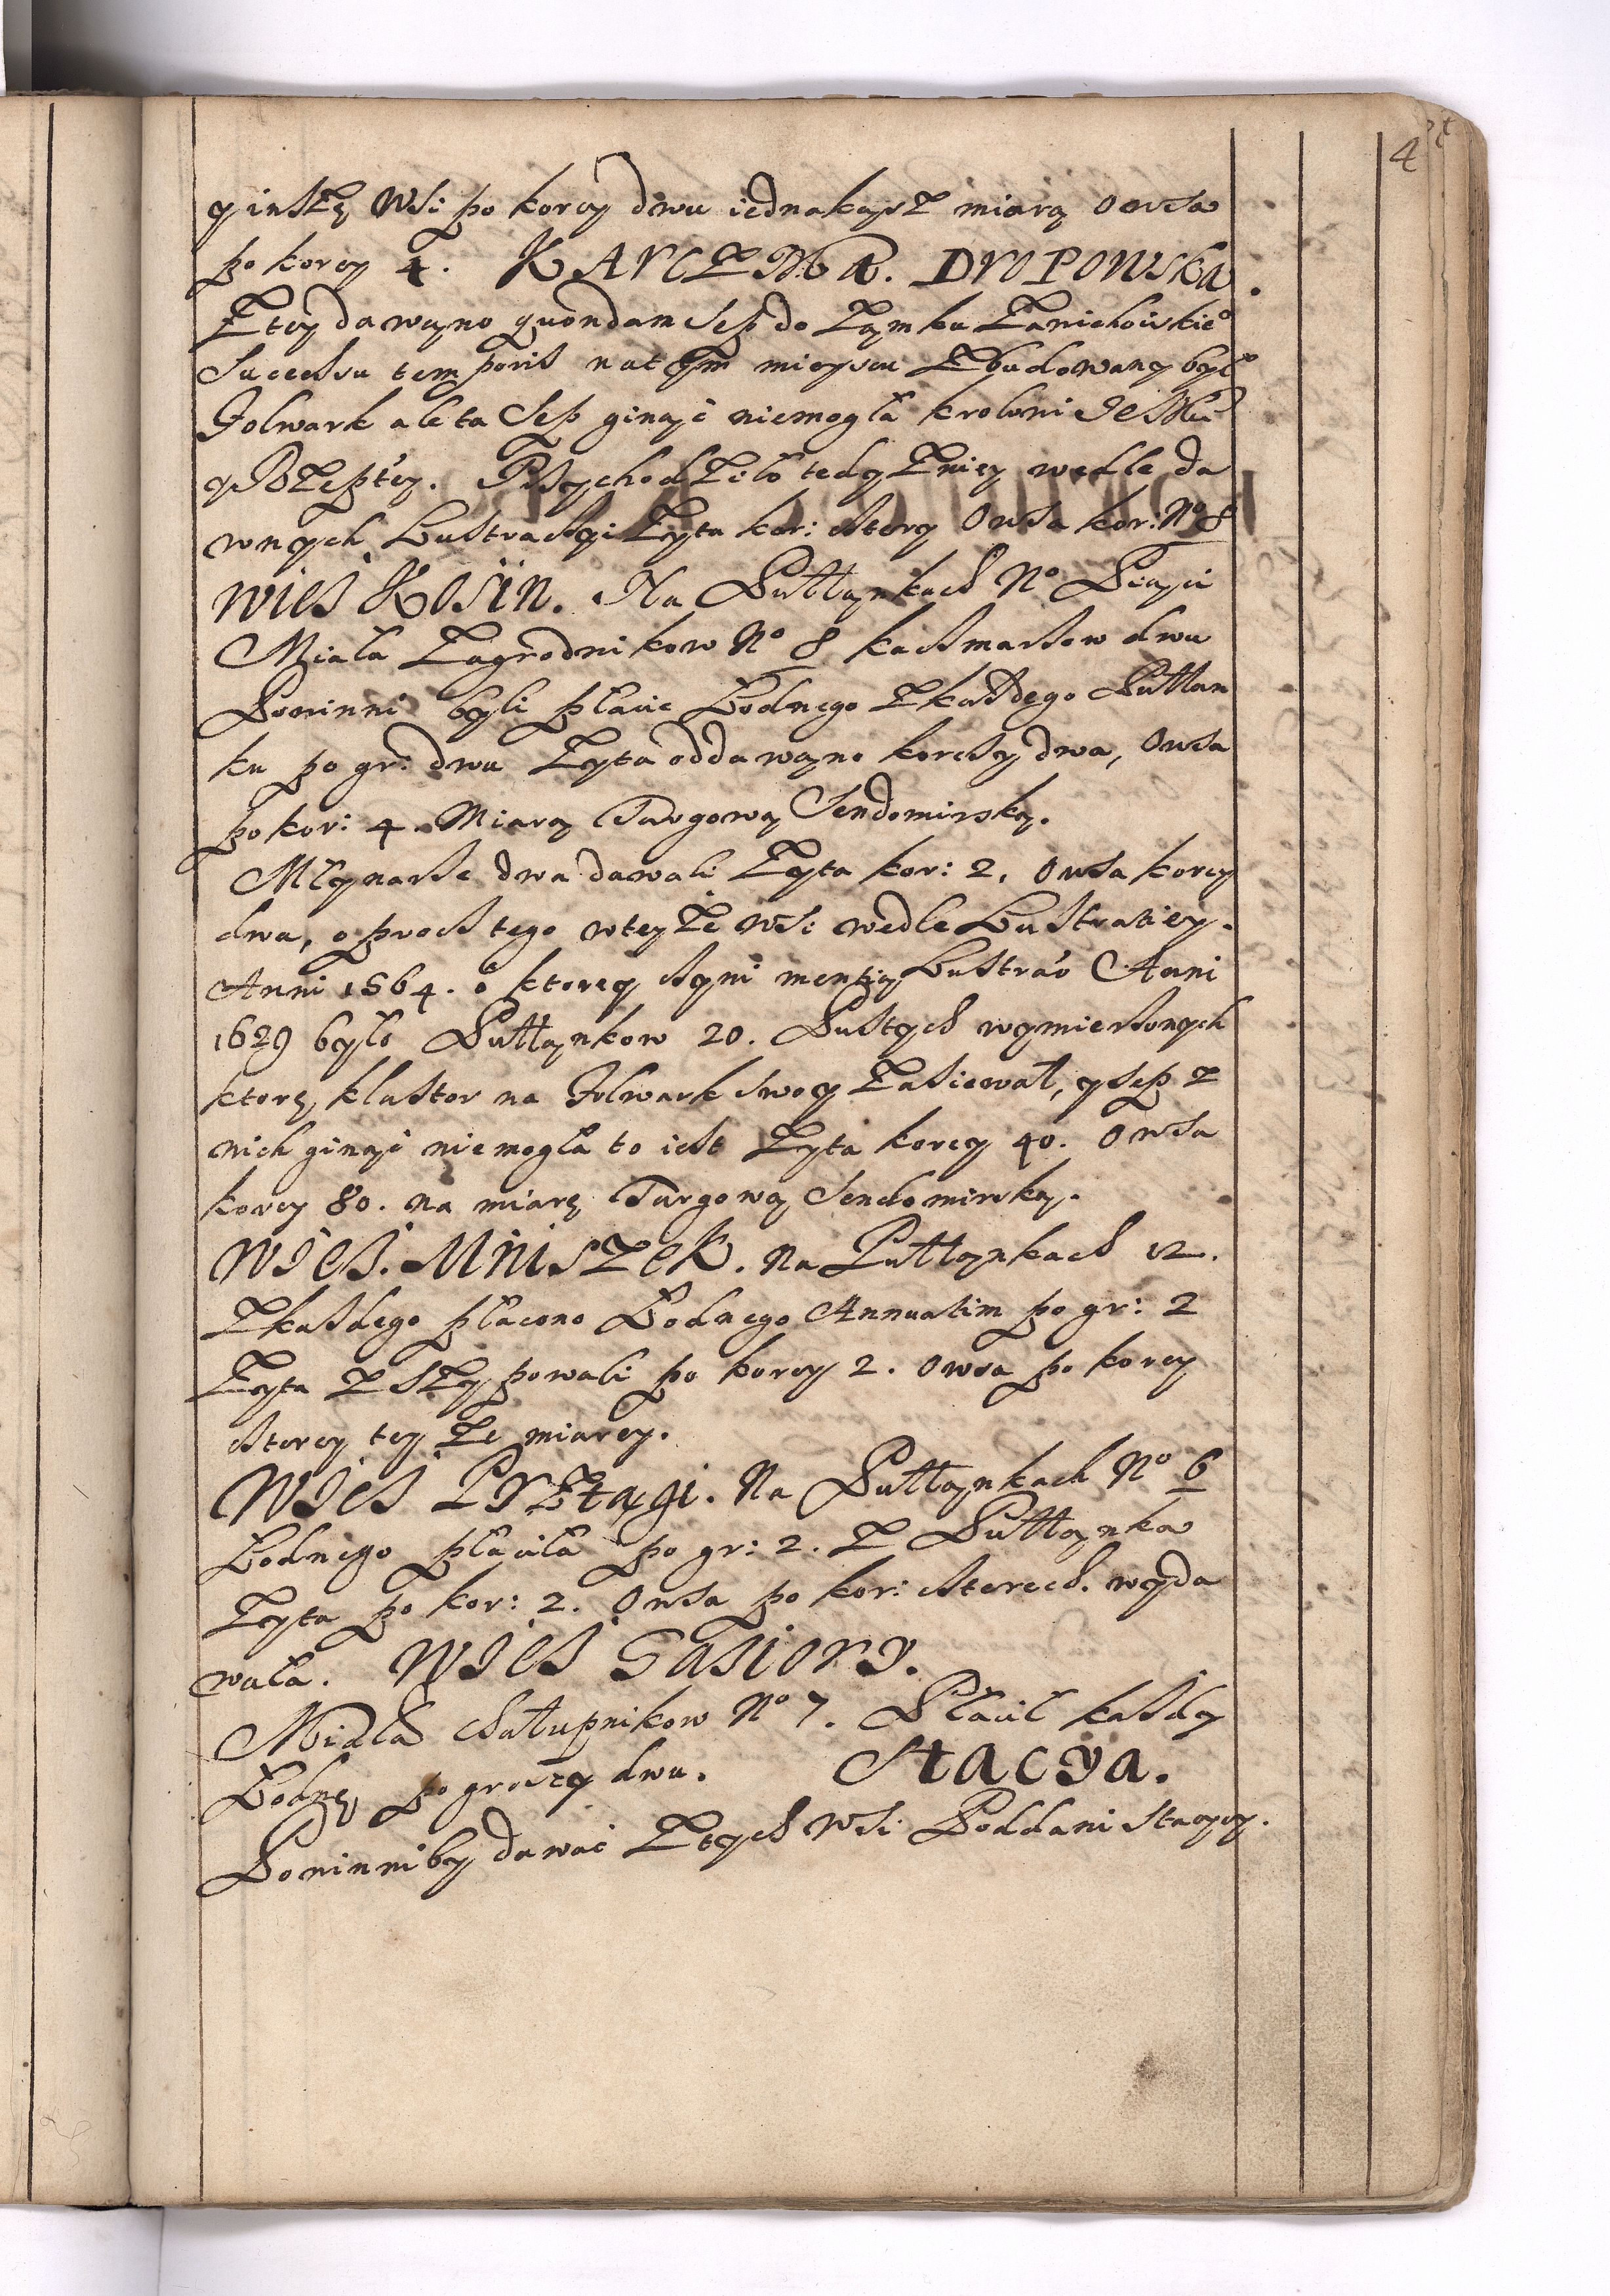 4
y inszę Wsi po korcy dwu iednakąsz miarą Owsa
po korcy 4. KARCZMA. DROPOWSKA.
Z tey dawano quondam Sep do Zamku Zawichowskie°
Sucessu temporis na tym mieyscu Zbudowany był
Folwark ale ta Sep ginąć niemogła krolowi Je
y Rzeptey. Przychodziło tedy Zniey wedle da
wnych Lustracyi Zyta kor: cztery Owsa kor: N° 8
WIES KOSIN. Na Pułłankach N° Piąci
Miała Zagrodnikow N° 8 kaczmarzow dwu
Powinni byli płacic Rodnego Zkażdego Pułłan
ku po gr: dwu Zyta oddawano korczy dwa, Owsa
po kor: 4. Miarą Targową Sendomirską.
Młynarze dwa dawali Zyta kor: 2. Owsa korcy
dwa, oprocz tego wteyże wsi wedle Lustratiey.
Anni 1564. o ktorey czyni mentią Lustrao Anni
1629 było Pułłankow 20. Pustych wymierzonych
ktorę klasztor na Folwark swoy Zasiewał, y sep z
nich ginąć niemogła to iest Zyta korcy 40. Owsa
korcy 80. na miarę Targową Sendomirską.
WIES. MNISZEK. Na Pułłankach 12.
Zkażdego płacono Rodnego Annuatim po gr: 2
Zyta Zsypowali po korcy 2. Owsa po korcy
cztery tey że miarey.
WIES Linztagi. Na Pułłankach N° 6
Rodnego płaciła po gr: 2. Z Pułłanka
Zyta po kor: 2. Owsa po kor: czterech. wyda
wała. WIES GASIORY.
Miała Chałupnikow N° 7. Płacił każdy
Rodnę po groszy dwu. Stacya.
Powinniby dawać Ztych Wsi Poddani Stacyy.